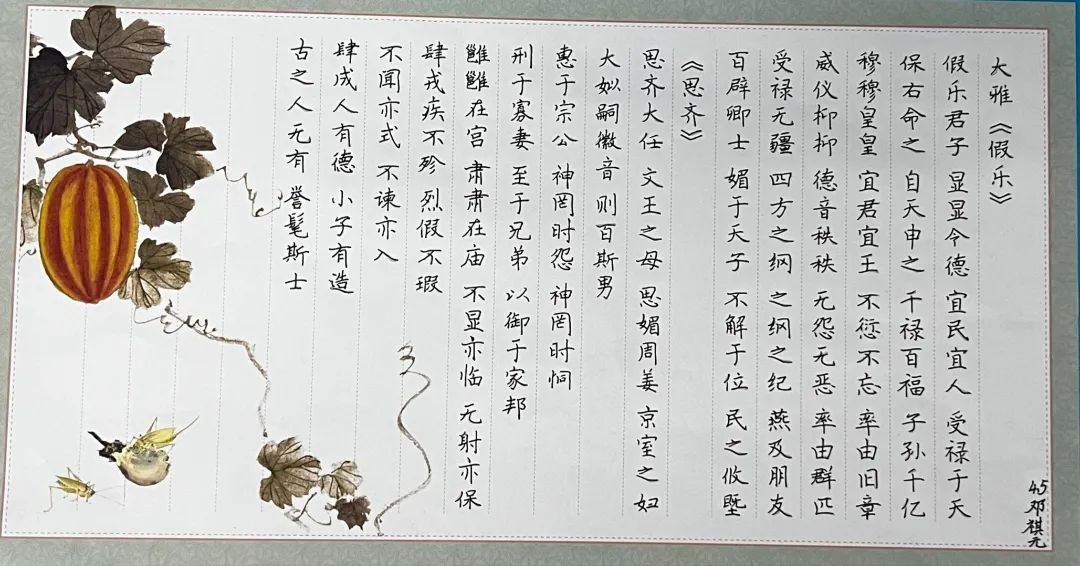 大雅《假乐》
假乐君子 显显令德 宜民宜人 受禄于天
保右命之 自天申之 千禄百福 子孙千亿
穆穆皇皇 宜君宜王 不愆不忘 率由旧章
威仪抑抑 德音秩秩 无怨无恶 率由群匹
受禄无疆 四方之纲 之纲之纪 燕及朋友
百辟卿士 媚于天子 不解于位 民之攸塈
《思齐》
思齐大任 文王之母 思媚周姜 京室之妇
大姒嗣徽音 则百斯男
惠于宗公 神罔时怨 神罔时恫
刑于寡妻 至于兄弟 以御于家邦
雝雝在宫 肃肃在庙 不显亦临 无射亦保
肆戎疾不殄 烈假不瑕
不闻亦式 不谏亦入
肆成人有德 小子有造
古之人无有 誉髦斯士
45邓祺元